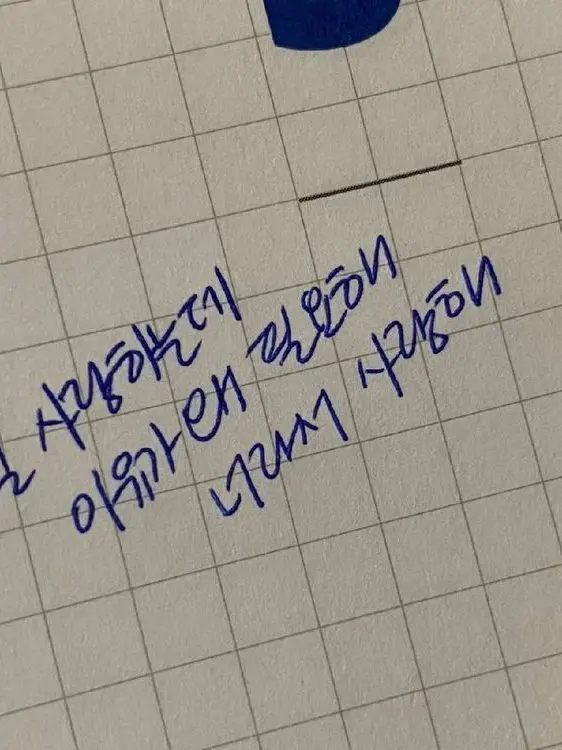 사랑하는데
이유가 왜 필요해
너라서 사랑해